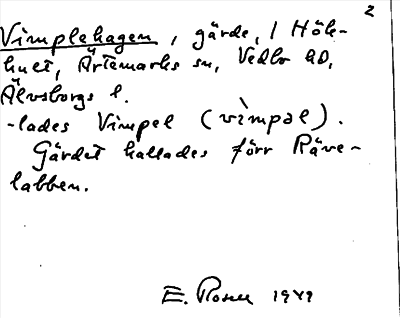 2
Vimplehagen, gärde, / Hök-
huet, Ärtemarks sn, Vedbo hd,
Älvsborgs l.
-lades Vimpel (vìmpəl).
Gärdet kallades förr Räve-
labben.
E. Rosen 1949